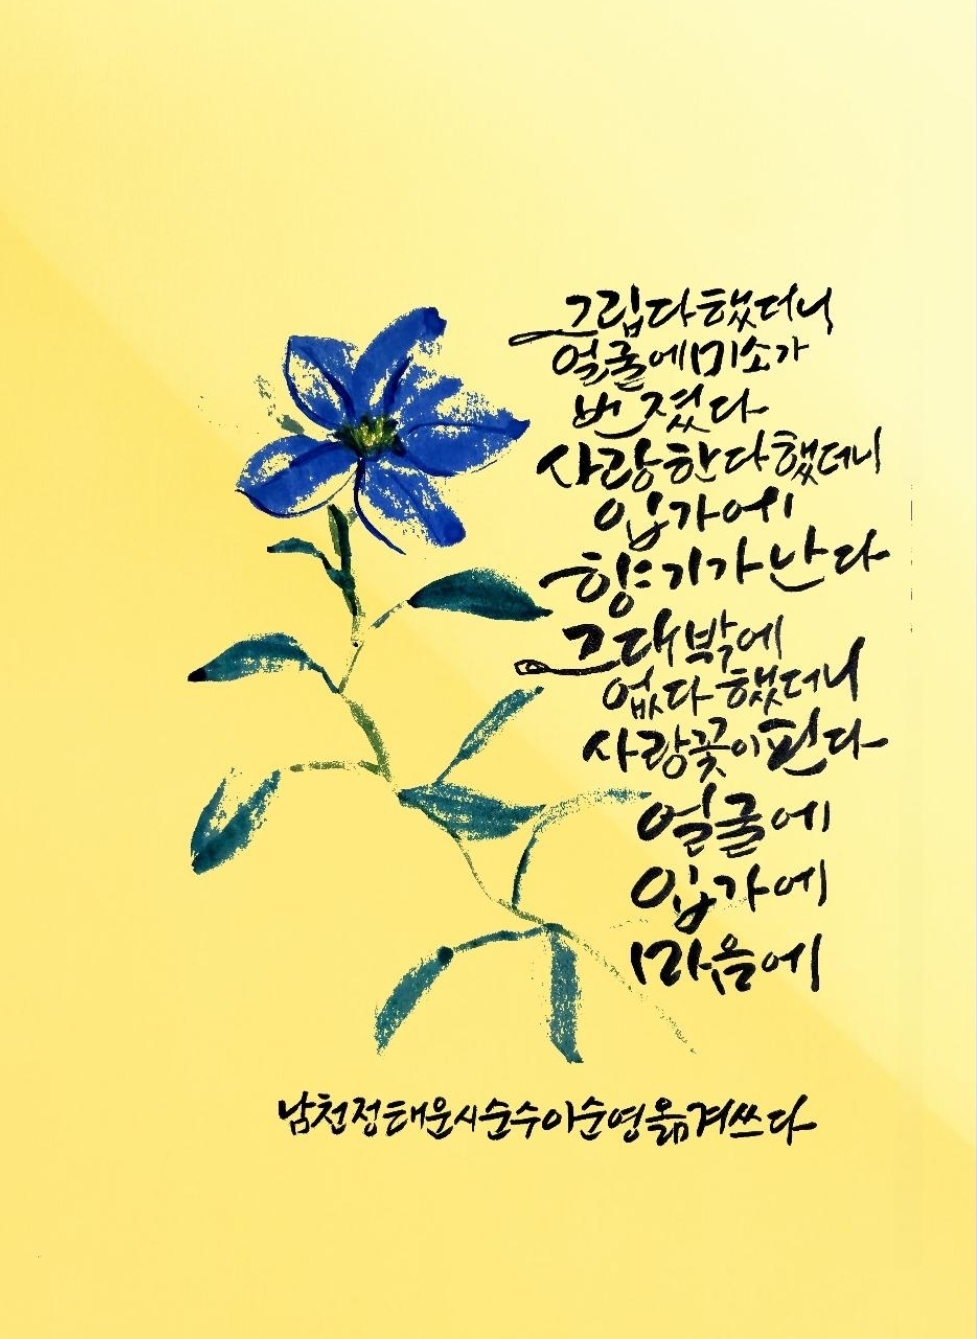 그립다했더니
얼굴에미소가
번졌다
사랑한다했더니
입가에
향기가난다
그대밖에
없다했더니
사랑꽃이핀다
얼굴에
입가에
마음에
남천정태운시순수이순영옮겨쓰다